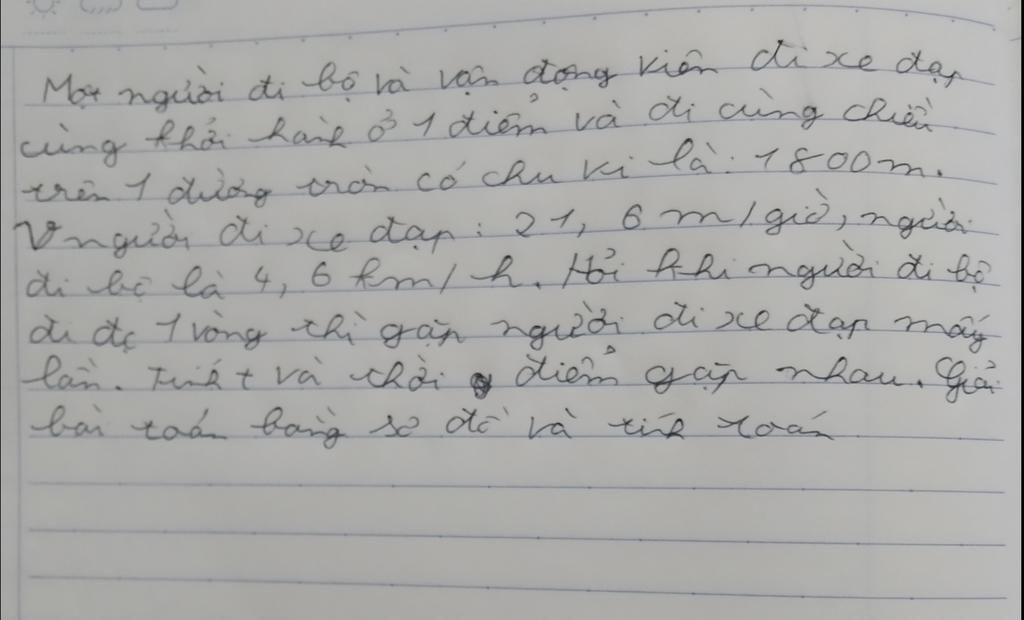 Một người đi bộ và vận động viên đi xe đạp
cùng khởi hành ở 1 điểm và đi cùng chiều
trên 1 đường tròn có chu vi là: 1800m.
V người đi xe đạp: 21, 6 m/giờ, người
đi bộ là 4, 6 km/h. Hỏi khi người đi bộ
đi đc 1 vòng thì gặp người đi xe đạp mấy
lần. Tính t và thời điểm gặp nhau. Giải
bài toán bằng sơ đồ và tính toán